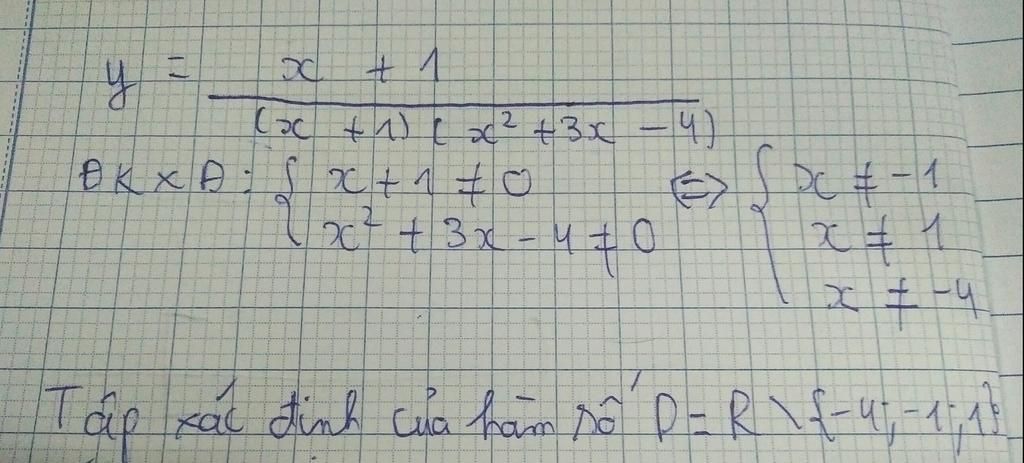 y = x + 1
(x + 1) (x² + 3x - 4)
ĐKXĐ: { x + 1 ≠ 0 <=> { x ≠ -1
x² + 3x - 4 ≠ 0 x ≠ 1
x ≠ -4
Tập xác định của hàm số D = R \ {-4; -1; 1}